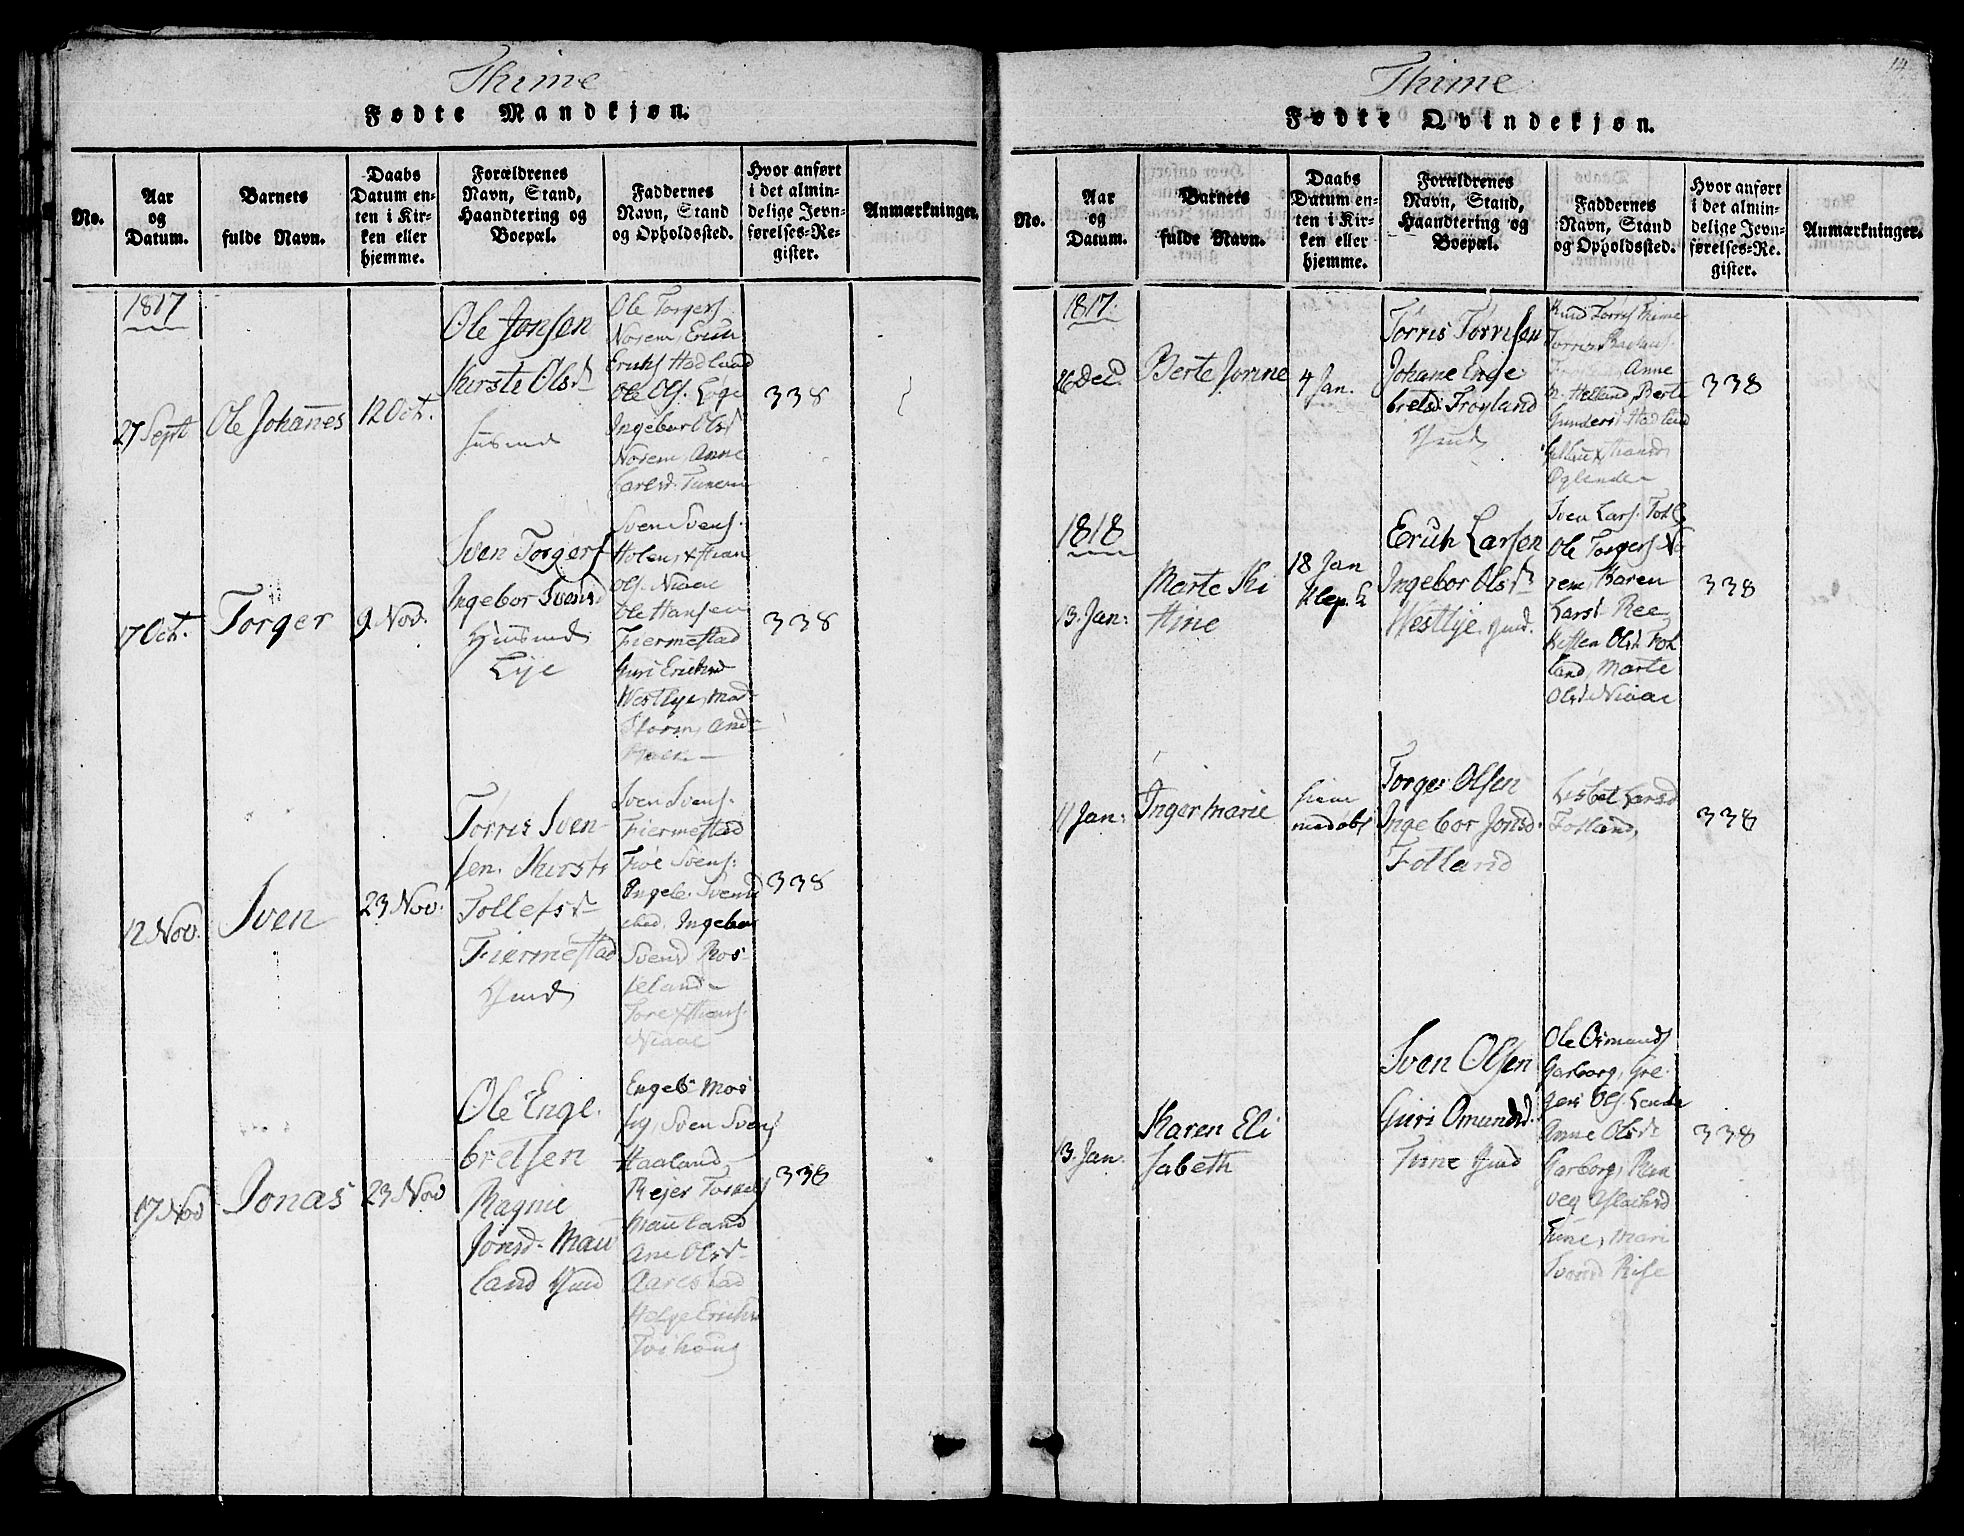 Thime
Fødte Mandkjøn.
No.
Aar
og
Datum.
Barnets
fulde Navn.
Daabs
Datum en-
ten i Kir-
ken eller
hjemme.
Forældrenes
Navn, Stand,
Haandtering og
Boepæl.
Faddernes
Navn, Stand
og Opholdssted.
Hvor anført
i det almin-
delige Jevn-
førelses-Re-
gister.
Anmærkninger.
1817
27 Sept
Ole Johannes
12 Oct.
Ole Jonsen
Kirste Olsd
Huusmd
Ole Torgers
Norem, Erich
Erichs Hadland
Ole Ols. Lye
Ingebor Olsd
Norem, Anne
Larsd. Tunem
338
17 Oct.
Torger
9 Nov.
Sven Torgers
Ingebor Svensd
Huusmd
Lye
Sven Svens.
Holen, Hans
Ols. Niaae
Ole Hansen
Fiermestad
Guri Erichsd
Westlye, Mad.
Storm, And-
338
12 Nov.
Sven
23 Nov.
Torris Sven-
sen. Kirste
Tollefsd
Fiermestad
Gmd
Sven Svens.
Fiermestad
Troe Svens:
Engeb. Svens
Ingebor
Svensd Ros-
seland
Tore Hans.
Niaae
338
17 Nov
Jonas
23 Nov
Ole Enge.
bretsen
Ragnie
Jonsd. Mau
land Gmd
Engeb. Mos
sig, Sven Svens
Haaland
Rejer Tores
Mauland
Ane Olsd
Aarestad
Helge Erichsd
Tvihoug
338
14
Thime
Fødte Qvindekjøn.
No.
Aar
og
Datum.
Barnets
fulde Navn.
Daabs
Datum en-
ten i Kir-
ken eller
hjemme.
Forældrenes
Navn, Stand,
Haandtering og
Boepæl.
Faddernes
Navn, Stand
og Opholdssted.
Hvor anført
i det almin-
delige Jevn-
førelses-Re-
gister.
Anmærkninger.
1817.
26 Dec.
Berte Jorine
4 Jan.
Torris Torrisen
Johane Enge
bretsd. Frøyland
Gmd
Knud Torris Thime
Torris
Anne
Helland, Berte
Gundersd Hadland
Hansd
Øglende
338
1818
13. Jan:
Marte Ki
stine
18 Jan
Klep. k
Erich Larsen
Ingebor Olsd
Westlye. Gmd.
Sven Lars. Totl.
Ole Torgers No
rem, Karen
Larsd Ree
Kisten Olsd Tot
land, Marte
Olsd Niaae
338
11 Jan:
Inger Marie
hiem
medøbt
Torger Olsen
Ingebor Jonsd.
Fotland
Lisbet Larsd
Fotland,
338
13. Jan.
Karen Eli
sabeth
Sven Olsen
Guri Omundsd.
Tune Gmd
Ole Osmunds
Garborg, Gre
gers Ols. Lende
Anne Olsd
Garborg, Ran
veg Aslachsd
Tune, Mari
Svensd Rise
338